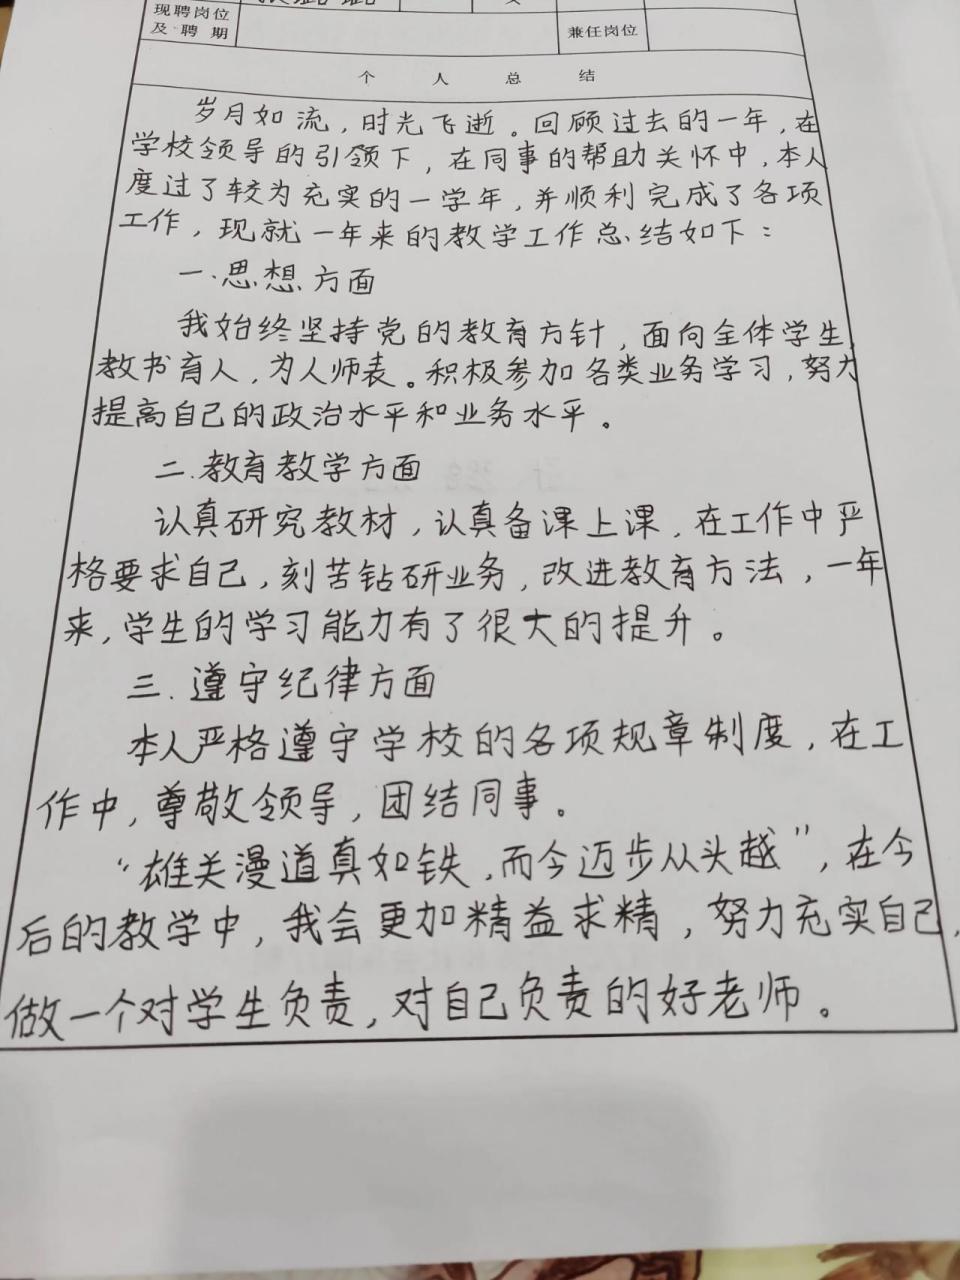 现聘岗位
及聘期
兼任岗位
个人总结
岁月如流，时光飞逝。回顾过去的一年，在
学校领导的引领下，在同事的帮助关怀中，本人
度过了较为充实的一学年，并顺利完成了各项
工作，现就一年来的教学工作总结如下：
一.思想方面
我始终坚持党的教育方针，面向全体学生，
教书育人，为人师表。积极参加各类业务学习，努力
提高自己的政治水平和业务水平。
二.教育教学方面
认真研究教材，认真备课上课，在工作中严
格要求自己，刻苦钻研业务，改进教育方法，一年
来，学生的学习能力有了很大的提升。
三.遵守纪律方面
本人严格遵守学校的各项规章制度，在工
作中，尊敬领导，团结同事。
“雄关漫道真如铁，而今迈步从头越”，在今
后的教学中，我会更加精益求精，努力充实自己，
做一个对学生负责，对自己负责的好老师。